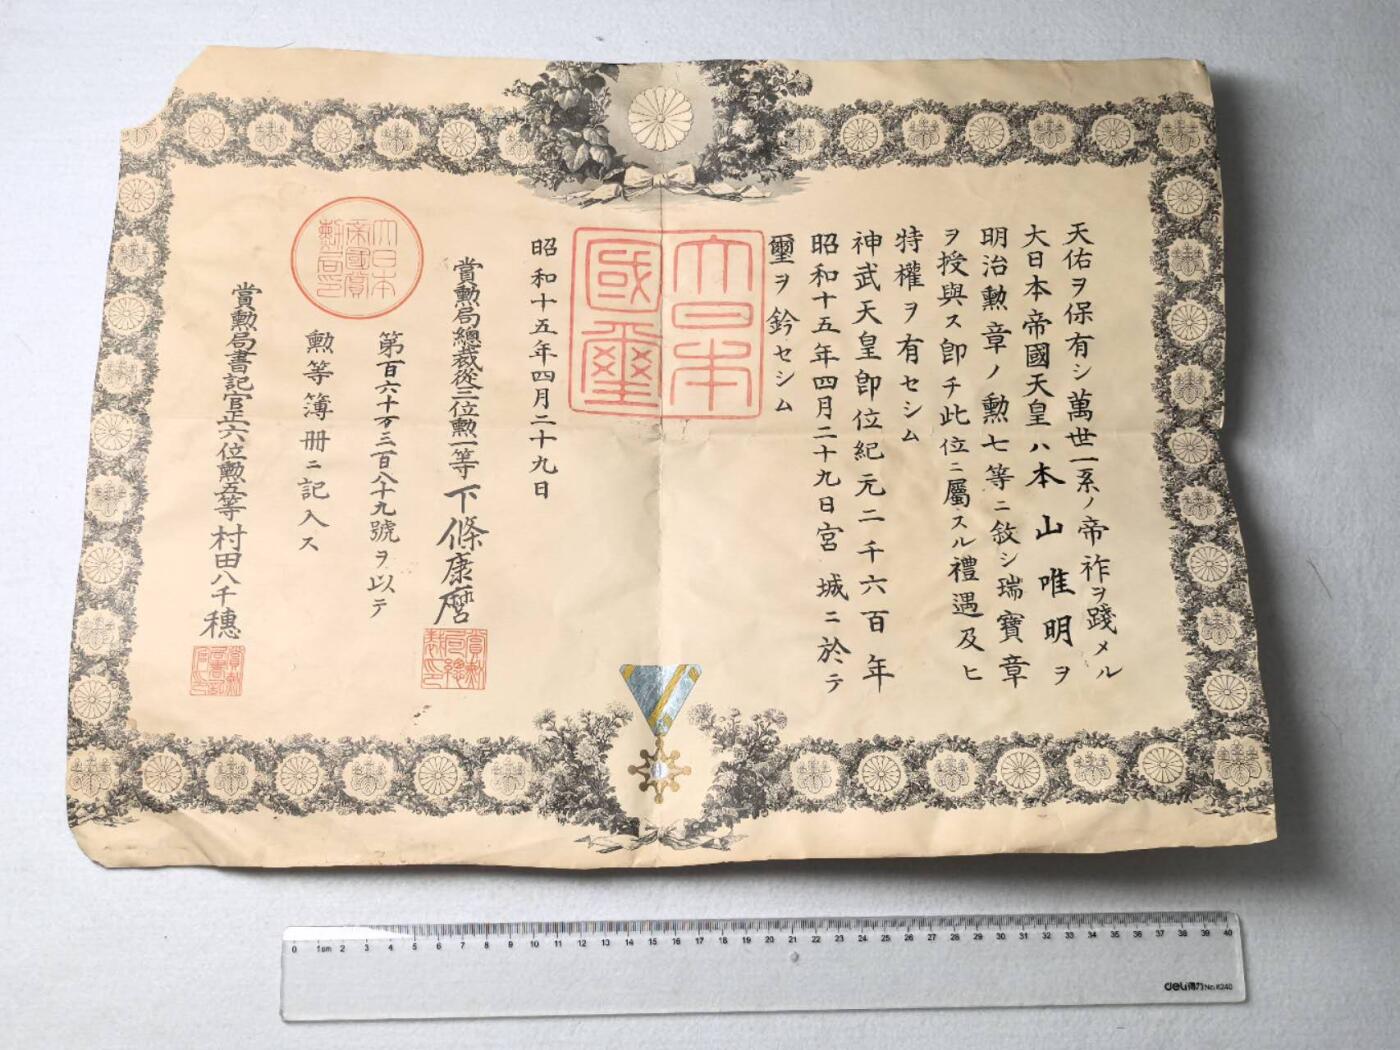 天佑ヲ保有シ萬世一系ノ帝祚ヲ踐メル
大日本帝國天皇ハ本山唯明ヲ
明治勲章ノ勲七等ニ敘シ瑞寶章
ヲ授與ス卽チ此位ニ屬スル禮遇及ヒ
特權ヲ有セシム
神武天皇卽位紀元二千六百年
昭和十五年四月二十九日宮城ニ於テ
璽ヲ鈐セシム
大日本
國璽
昭和十五年四月二十九日
賞勲局總裁從三位勲一等下條康麿
賞勲
局總
裁印
第百六十万三百八十九號ヲ以テ
勲等簿册ニ記入ス
大日本
帝國賞
勲局印
賞勲局書記官正六位勲五等村田八千穗
賞勲
局書記
官印
0 1cm 2 3 4 5 6 7 8 9 10 11 12 13 14 15 16 17 18 19 20 21 22 23 24 25 26 27 28 29 30 31 32 33 34 35 36 37 38 39 40
deli得力 No.6240